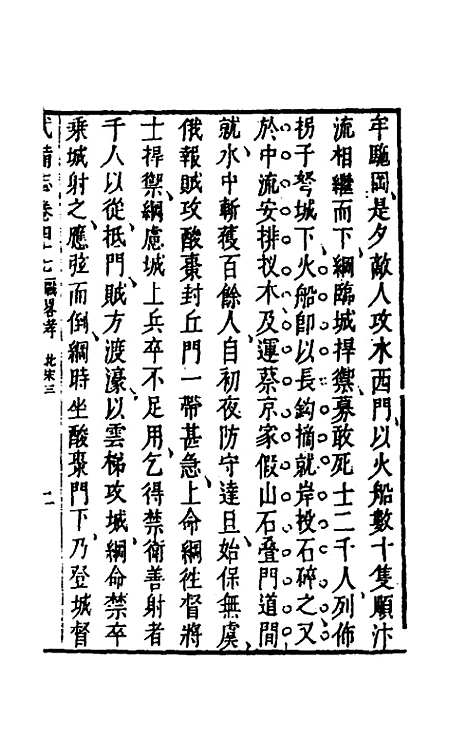 牟駞岡是夕敵人攻水西門以火船數十隻順汴
流相繼而下綱臨城捍禦募敢死士二千人列佈
拐子弩城下火船卽以長鈎摘就岸投石碎之又
於中流安排扠木及運蔡京家假山石叠門道間
就水中斬獲百餘人自初夜防守達旦始保無虞
俄報賊攻酸棗封丘門一帶甚急上命綱徃督將
士捍禦綱慮城上兵卒不足用乞得禁衛善射者
千人以從抵門賊方渡濠以雲梯攻城綱命禁卒
乘城射之應弦而倒綱時坐酸棗門下乃登城督
武備志卷四十七 戰畧考 北宋三 十一